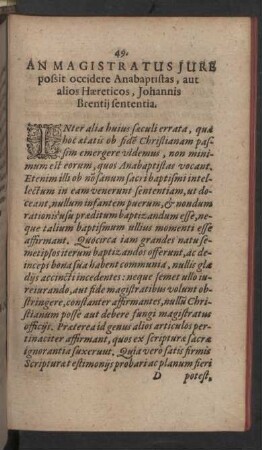 49.
AN MAGISTRATUS JURE
possit occidere Anabaptistas, aut
alios Hæreticos, Johannis
Brentij sententia.
INter alia huius sæculi errata, quæ
hoc ætatis ob fidē Christianam pas-
sim emergere videmus, non mini-
mum est eorum, quos Anabaptistas vocant.
Etenim illi ob nō sanum sacri baptismi intel-
lectum in eam venerunt sententiam, ut do-
ceant, nullum infantem puerum, & nondum
rationis usu præditum baptizandum esse, ne-
que talium baptismum ullius momenti esse
affirmant. Quocirca iam grandes natu se-
metipsos iterum baptizandos offerunt, ac de-
inceps bona sua habent communia, nullis gla-
dijs accincti incedentes: neque semet ullo iu-
reiurando, aut fide magistratibus volunt ob-
stringere, constanter affirmantes, nullū Chri-
stianum posse aut debere fungi magistratus
officijs. Præterea id genus alios articulos per-
tinaciter affirmant, quos ex scripturæ sacræ
ignorantia suxerunt. Quia vero satis firmis
Scripturæ testimonijs probari ac planum fieri
D potest,